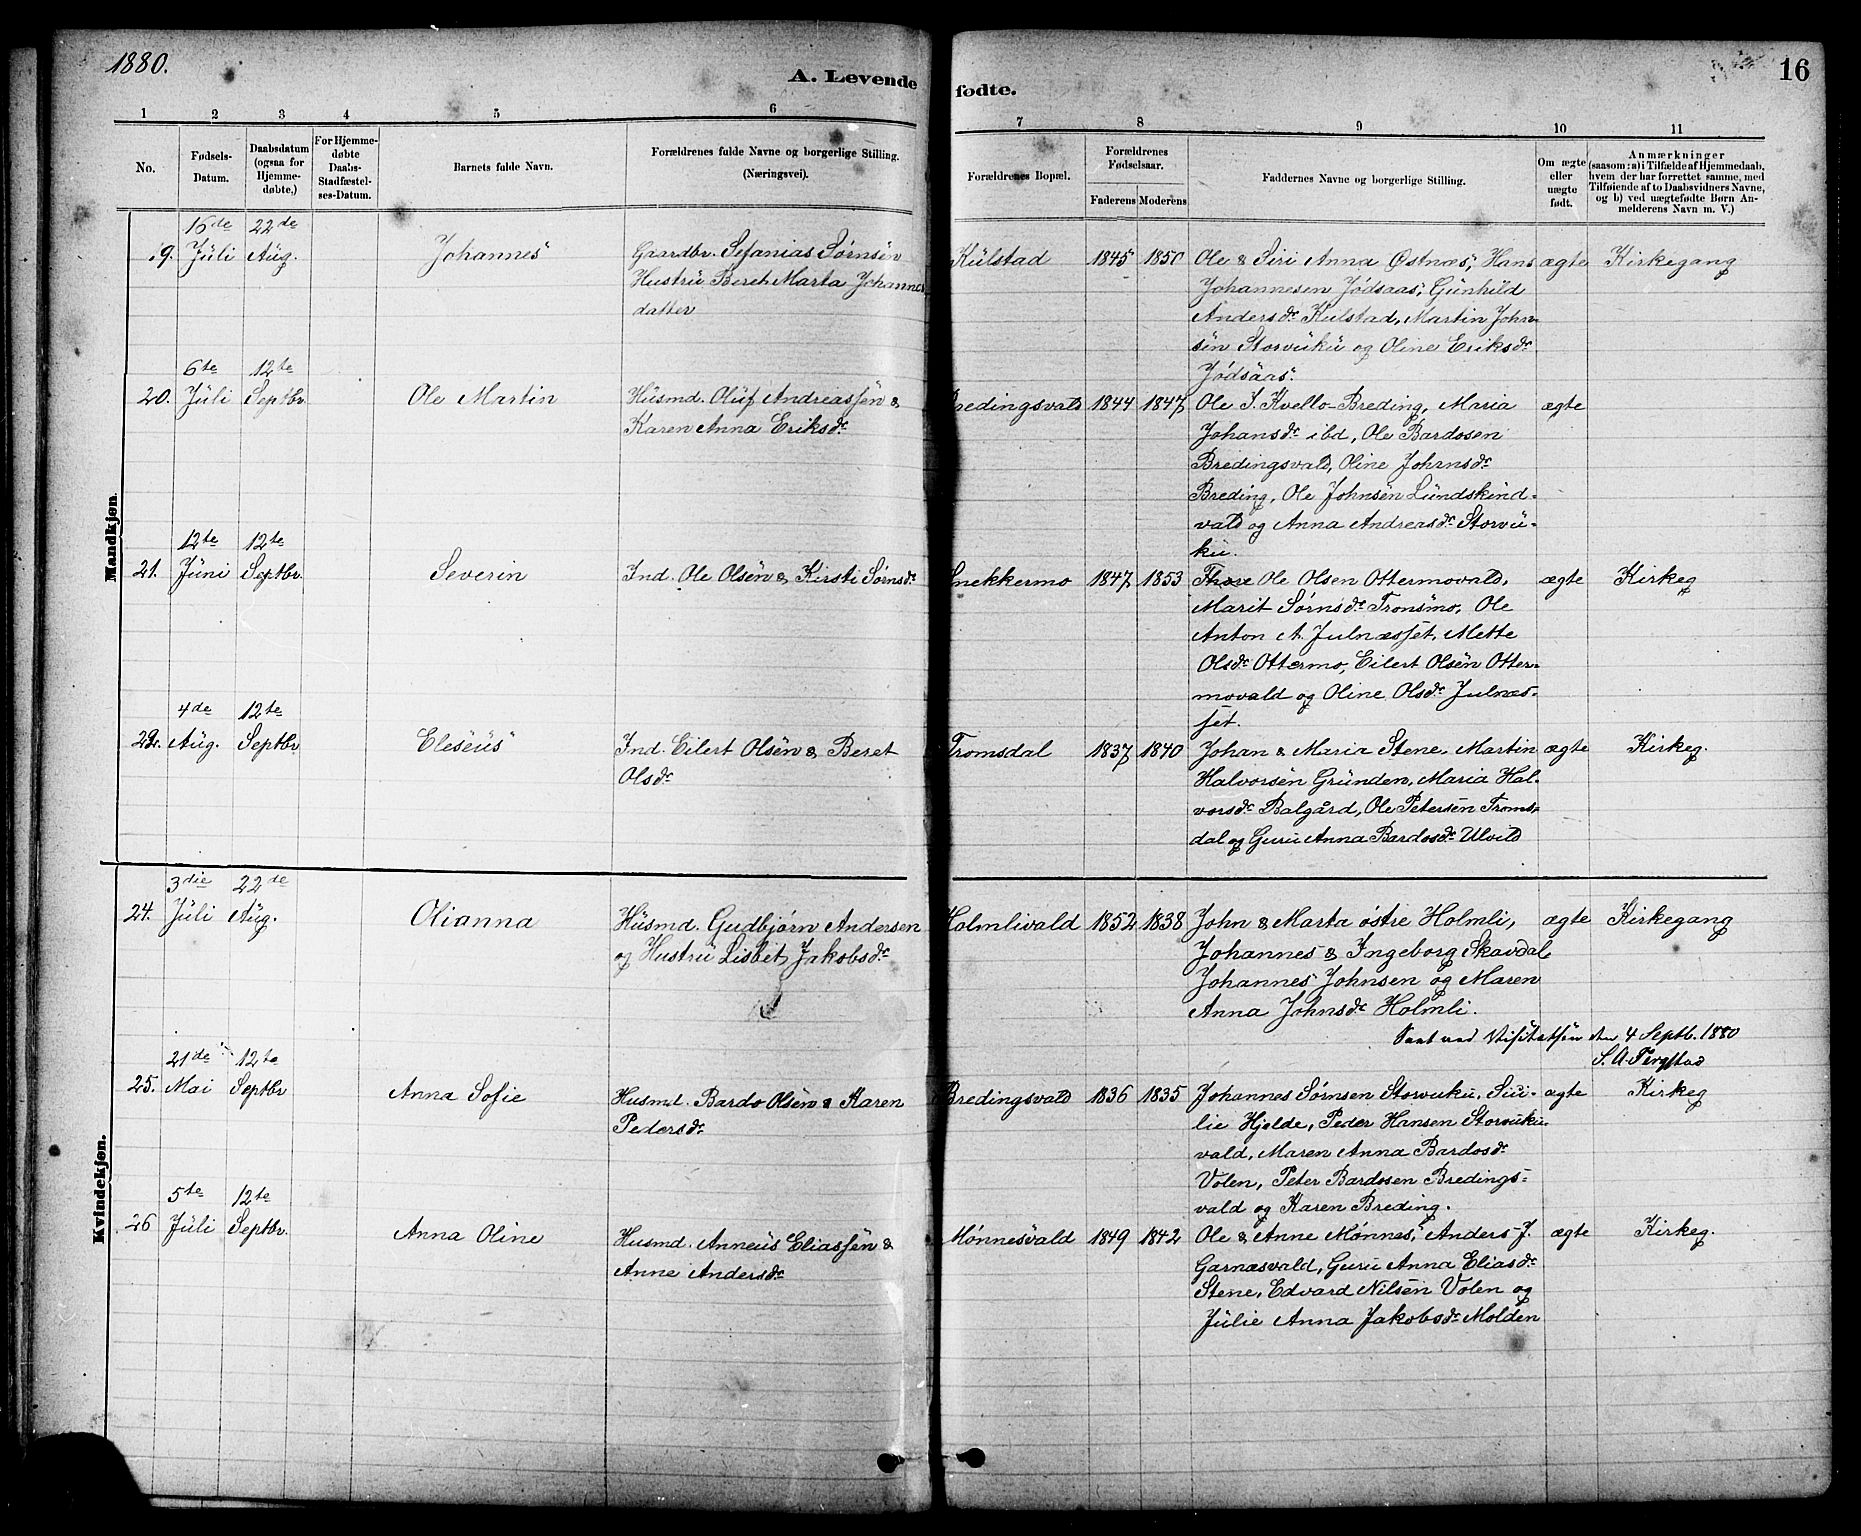 1880.
A. Levende
fødte.
16
1 2 3 4 5 6 7 8 9 10 11
No.
Fødsels-
Datum.
Daabsdatum
(ogsaa for
Hjemme-
døbte,)
For Hjemme-
døbte
Daabs-
Stadfæstel-
ses-Datum.
Barnets fulde Navn.
Forældrenes fulde Navne og borgerlige Stilling.
(Næringsvei).
Forældrenes Bopæl.
Forældrenes
Fødselsaar.
Faderens Moderens
Faddernes Navne og borgerlige Stilling.
Om ægte
eller
uægte
født.
Anmærkninger
(saasom: a) i Tilfælde af Hjemmedaab,
hvem der har forrettet samme, med
Tilføiende af to Daabsvidners Navne,
og b) ved uægtefødte Børn An-
melderens Navn m. V.)
Mandkjøn.
16de 22de
19. Juli Aug. Johannes Gaardbr. Sefanias Sørnsen Külstad 1845 1850 Ole & Siri Anna Østnæs, Hans ægte Kirkegang
Hustru Beret Marta Johannes Johannesen Jødsaas, Gunhild
datter Andersdr Kulstad, Martin John-
sen Storvuku og Oline Eriksdr
Jødsaas.
6te 12te
20. Juli Septbr. Ole Martin Husmd. Oluf Andreassen & Bredingsvald 1844 1847 Ole I. Kvello-Breding, Maria ægte
Karen Anna Eriksdr Johansdr ibd, Ole Bardosen
Bredingsvald, Oline Johnsdr
Breding, Ole Johnsen Lundskind-
vald og Anna Andreasdr Storvu-
ku.
12te 12te
21. Juni Septbr. Severin Ind. Ole Olsen & Kirsti Sørnsdr Snekkermo 1847 1853 Thore Ole Olsen Ottermovald, ægte Kirkeg
Marit Sørnsdr Tronsmo, Ole
Anton A. Julnæsset, Mette
Olsdr Ottermo, Eilert Olsen Otter-
movald og Oline Olsdr Julnæs-
set.
4de 12te
22. Aug. Septbr. Eleseus Ind. Eilert Olsen & Beret Tromsdal 1837 1840 Johan & Maria Stene, Martin ægte Kirkeg.
Olsdr Halvorsen Grunden, Maria Hal-
vorsdr Balgård, Ole Petersen Troms-
dal og Guru Anna Bardosdr Ulvild
Kvindekjøn.
3die 22de
24. Juli Aug. Olianna Husmd. Gudbjørn Andersen Holmlivald 1852 1838 John & Marta østre Holmli, ægte Kirkegang
og Hustru Lisbet Jakobsdr Johannes & Ingeborg Skavdal,
Johannes Johnsen og Maren
Anna Johnsdr Holmli.
Seet ved Visitatsen den 4 Septb. 1880
21de 12te
25. Mai Septbr Anna Sofie Husmd. Bardo Olsen & Karen Bredingsvald 1836 1835 Johannes Sørnsen Storvuku, ægte Kirkeg
Pedersdr lie Hjelde, Peder Hansen Storvuku-
vald, Maren Anna Bardosdr
Volen, Peter Bardosen Bredings-
vald og Karen Breding.
5te 12te
26 Juli Septbr. Anna Oline Husmd. Anneus Eliassen & Mønnesvald 1849 1842 Ole & Anne Mønnes, Anders J. ægte Kirkeg.
Anne Andersdr Garnæsvald, Guru Anna Eliasdr
Stene, Edvard Nilsen Volen og
Julie Anna Jakobsdr Molden